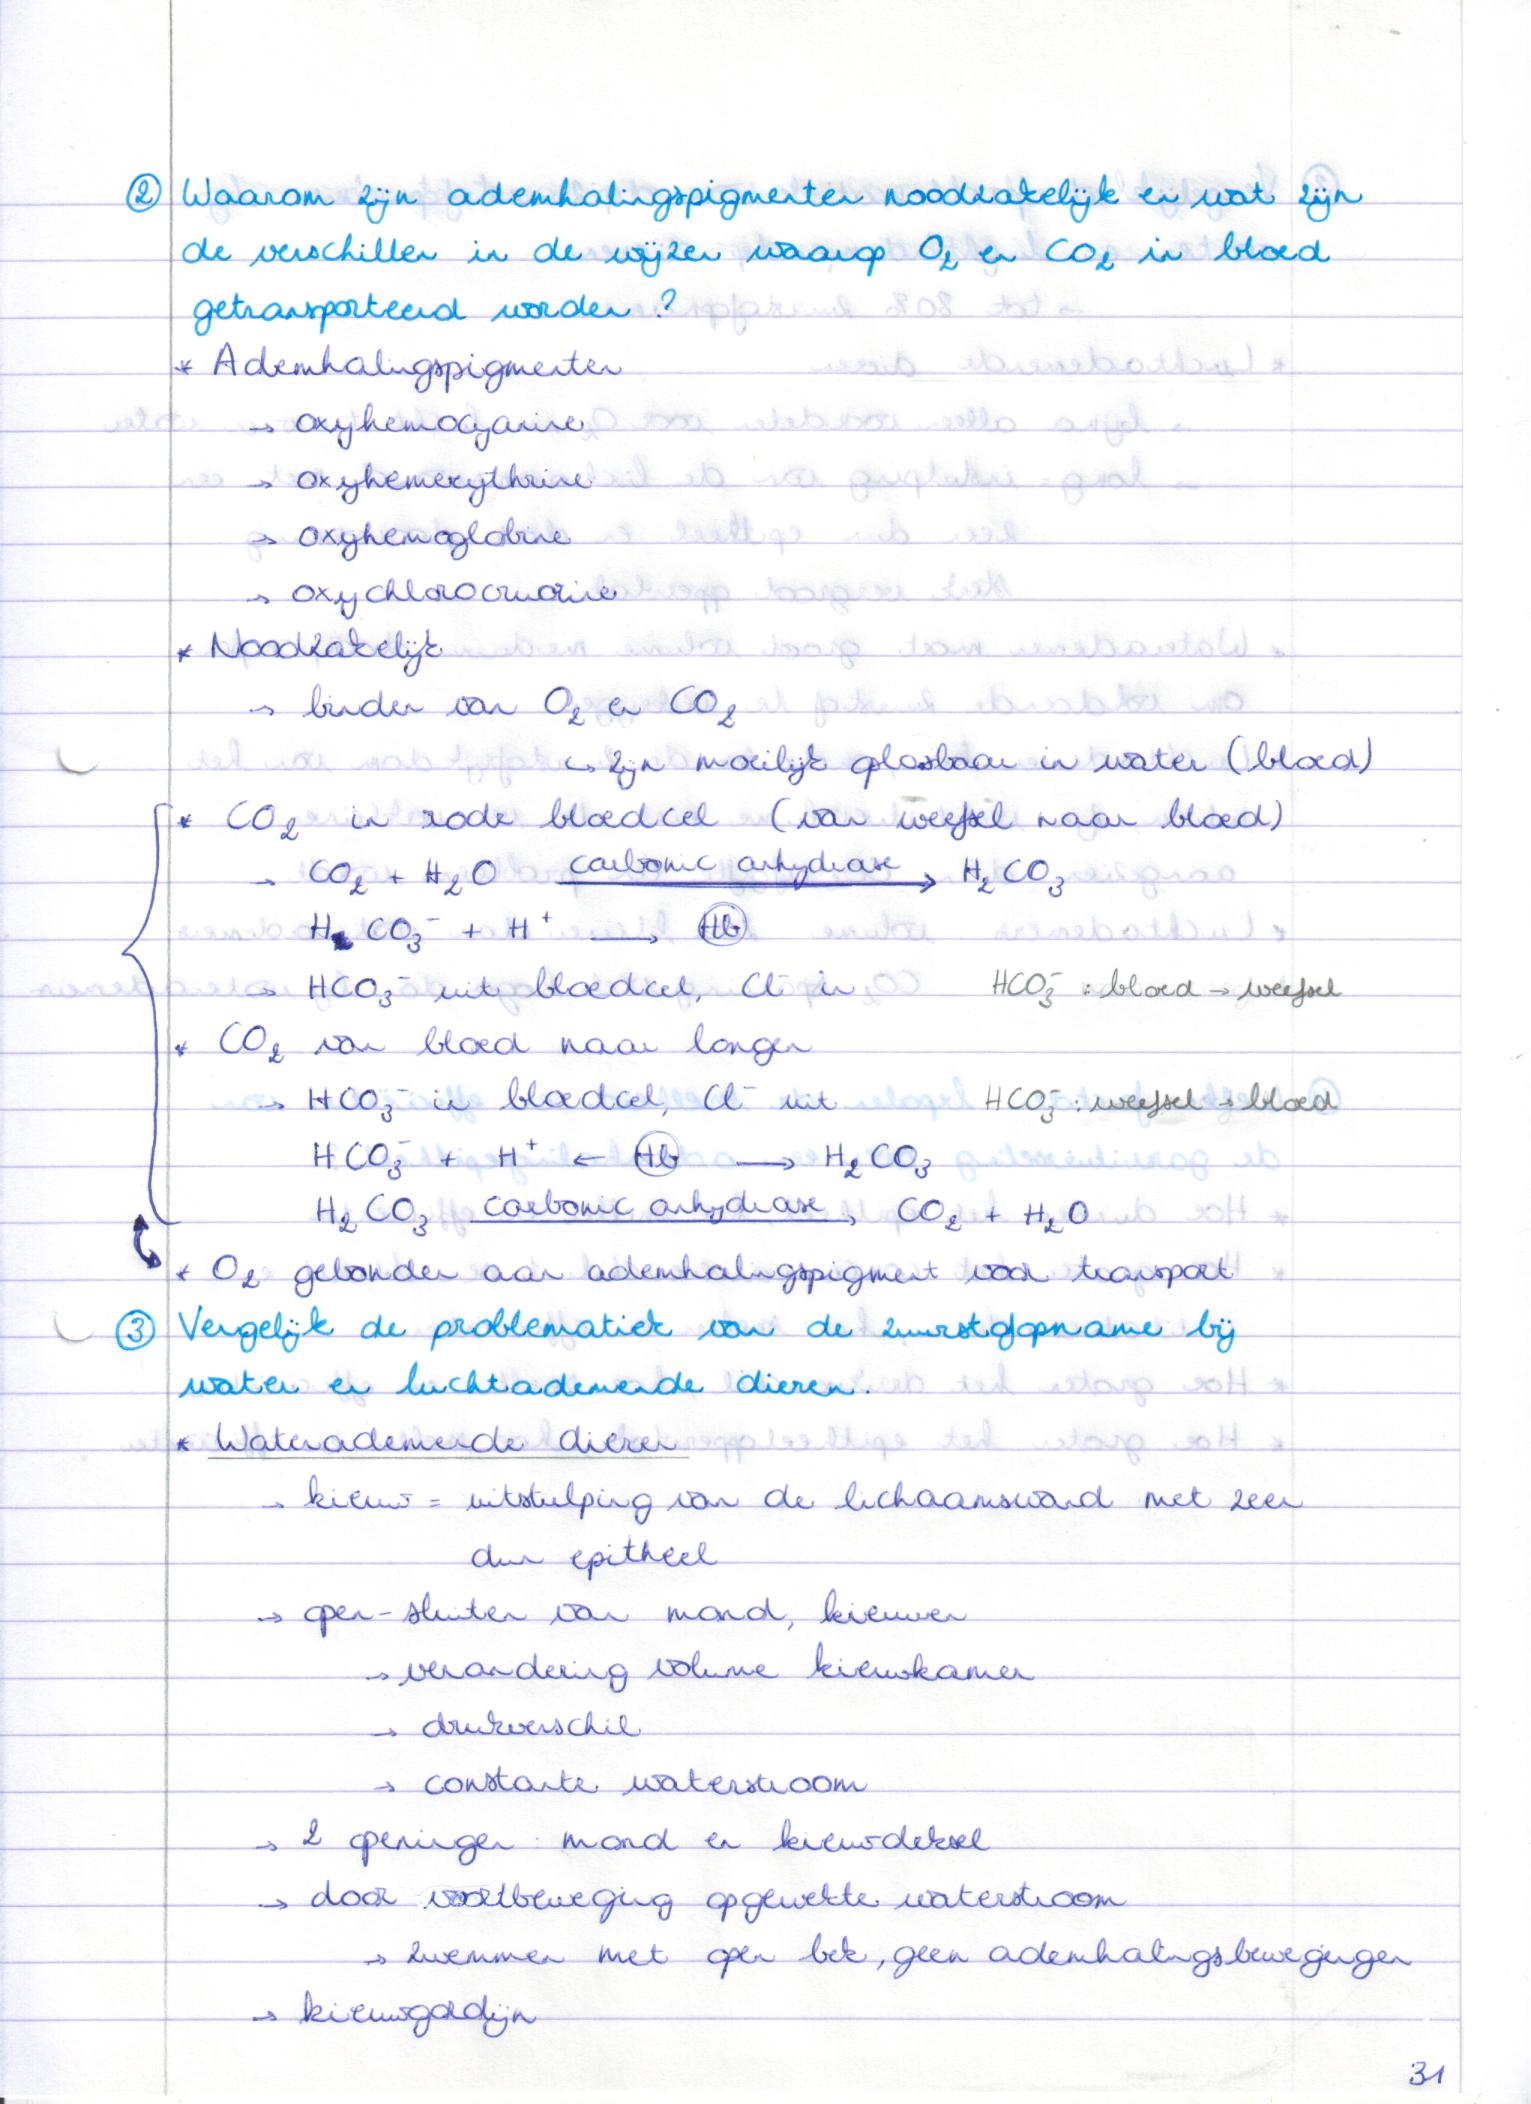 ② Waarom zijn ademhalingspigmenten noodzakelijk en wat zijn
de verschillen in de wijzen waarop O₂ en CO₂ in bloed
getransporteerd worden?
* Ademhalingspigmenten
→ oxyhemocyanine
→ oxyhemerythrine
→ oxyhemoglobine
→ oxychlorocruorine
* Noodzakelijk
→ binden van O₂ en CO₂
↳ zijn moeilijk oplosbaar in water (bloed)
* CO₂ in rode bloedcel (van weefsel naar bloed)
→ CO₂ + H₂O carbonic anhydrase → H₂CO₃
HCO₃⁻ + H⁺ → Hb
→ HCO₃⁻ uit bloedcel, Cl⁻ in HCO₃⁻: bloed → weefsel
* CO₂ van bloed naar longen
→ HCO₃⁻ in bloedcel, Cl⁻ uit HCO₃⁻: weefsel → bloed
HCO₃⁻ + H⁺ ← Hb → H₂CO₃
H₂CO₃ carbonic anhydrase → CO₂ + H₂O
* O₂ gebonden aan ademhalingspigment voor transport
③ Vergelijk de problematiek van de zuurstofopname bij
water en luchtademende dieren.
* Waterademende dieren
→ kieuw = uitstulping van de lichaamswand met zeer
dun epitheel
→ open-sluiten van mond, kieuwen
→ verandering volume kieuwkamer
→ drukverschil
→ constante waterstroom
→ 2 openingen: mond en kieuwdeksel
→ door voortbeweging opgewekte waterstroom
→ zwemmen met open bek, geen ademhalingsbewegingen
→ kieuwgordijn
31